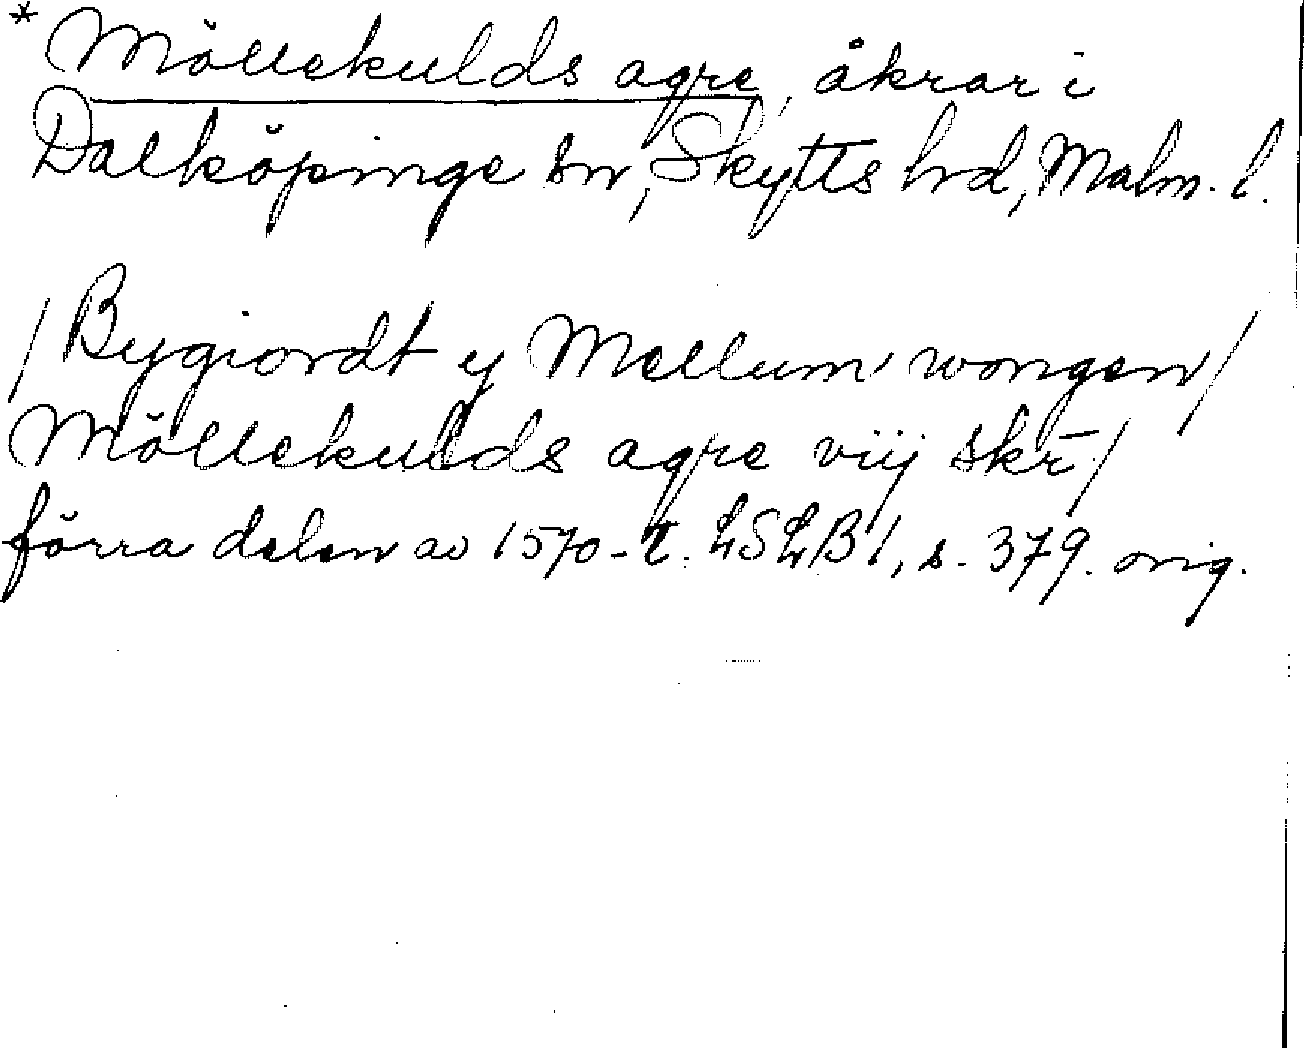 * Möllekulds agre, åkrar i
Dalköpinge sn, Skytts hrd, Malm. l.
/Bygiordt y Mellum wongen/
Möllekulds agre viij skr̄/
förra delen av 1570-t. LSLB1, s. 379. orig.